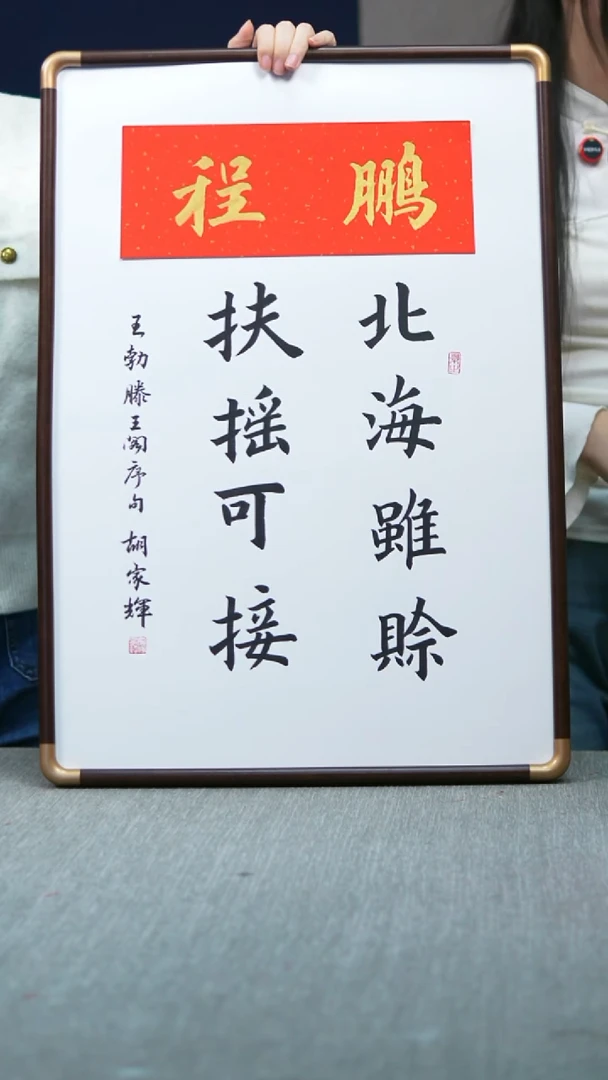 鵬程
北海雖賒
扶摇可接
王勃滕王阁序句 胡家輝